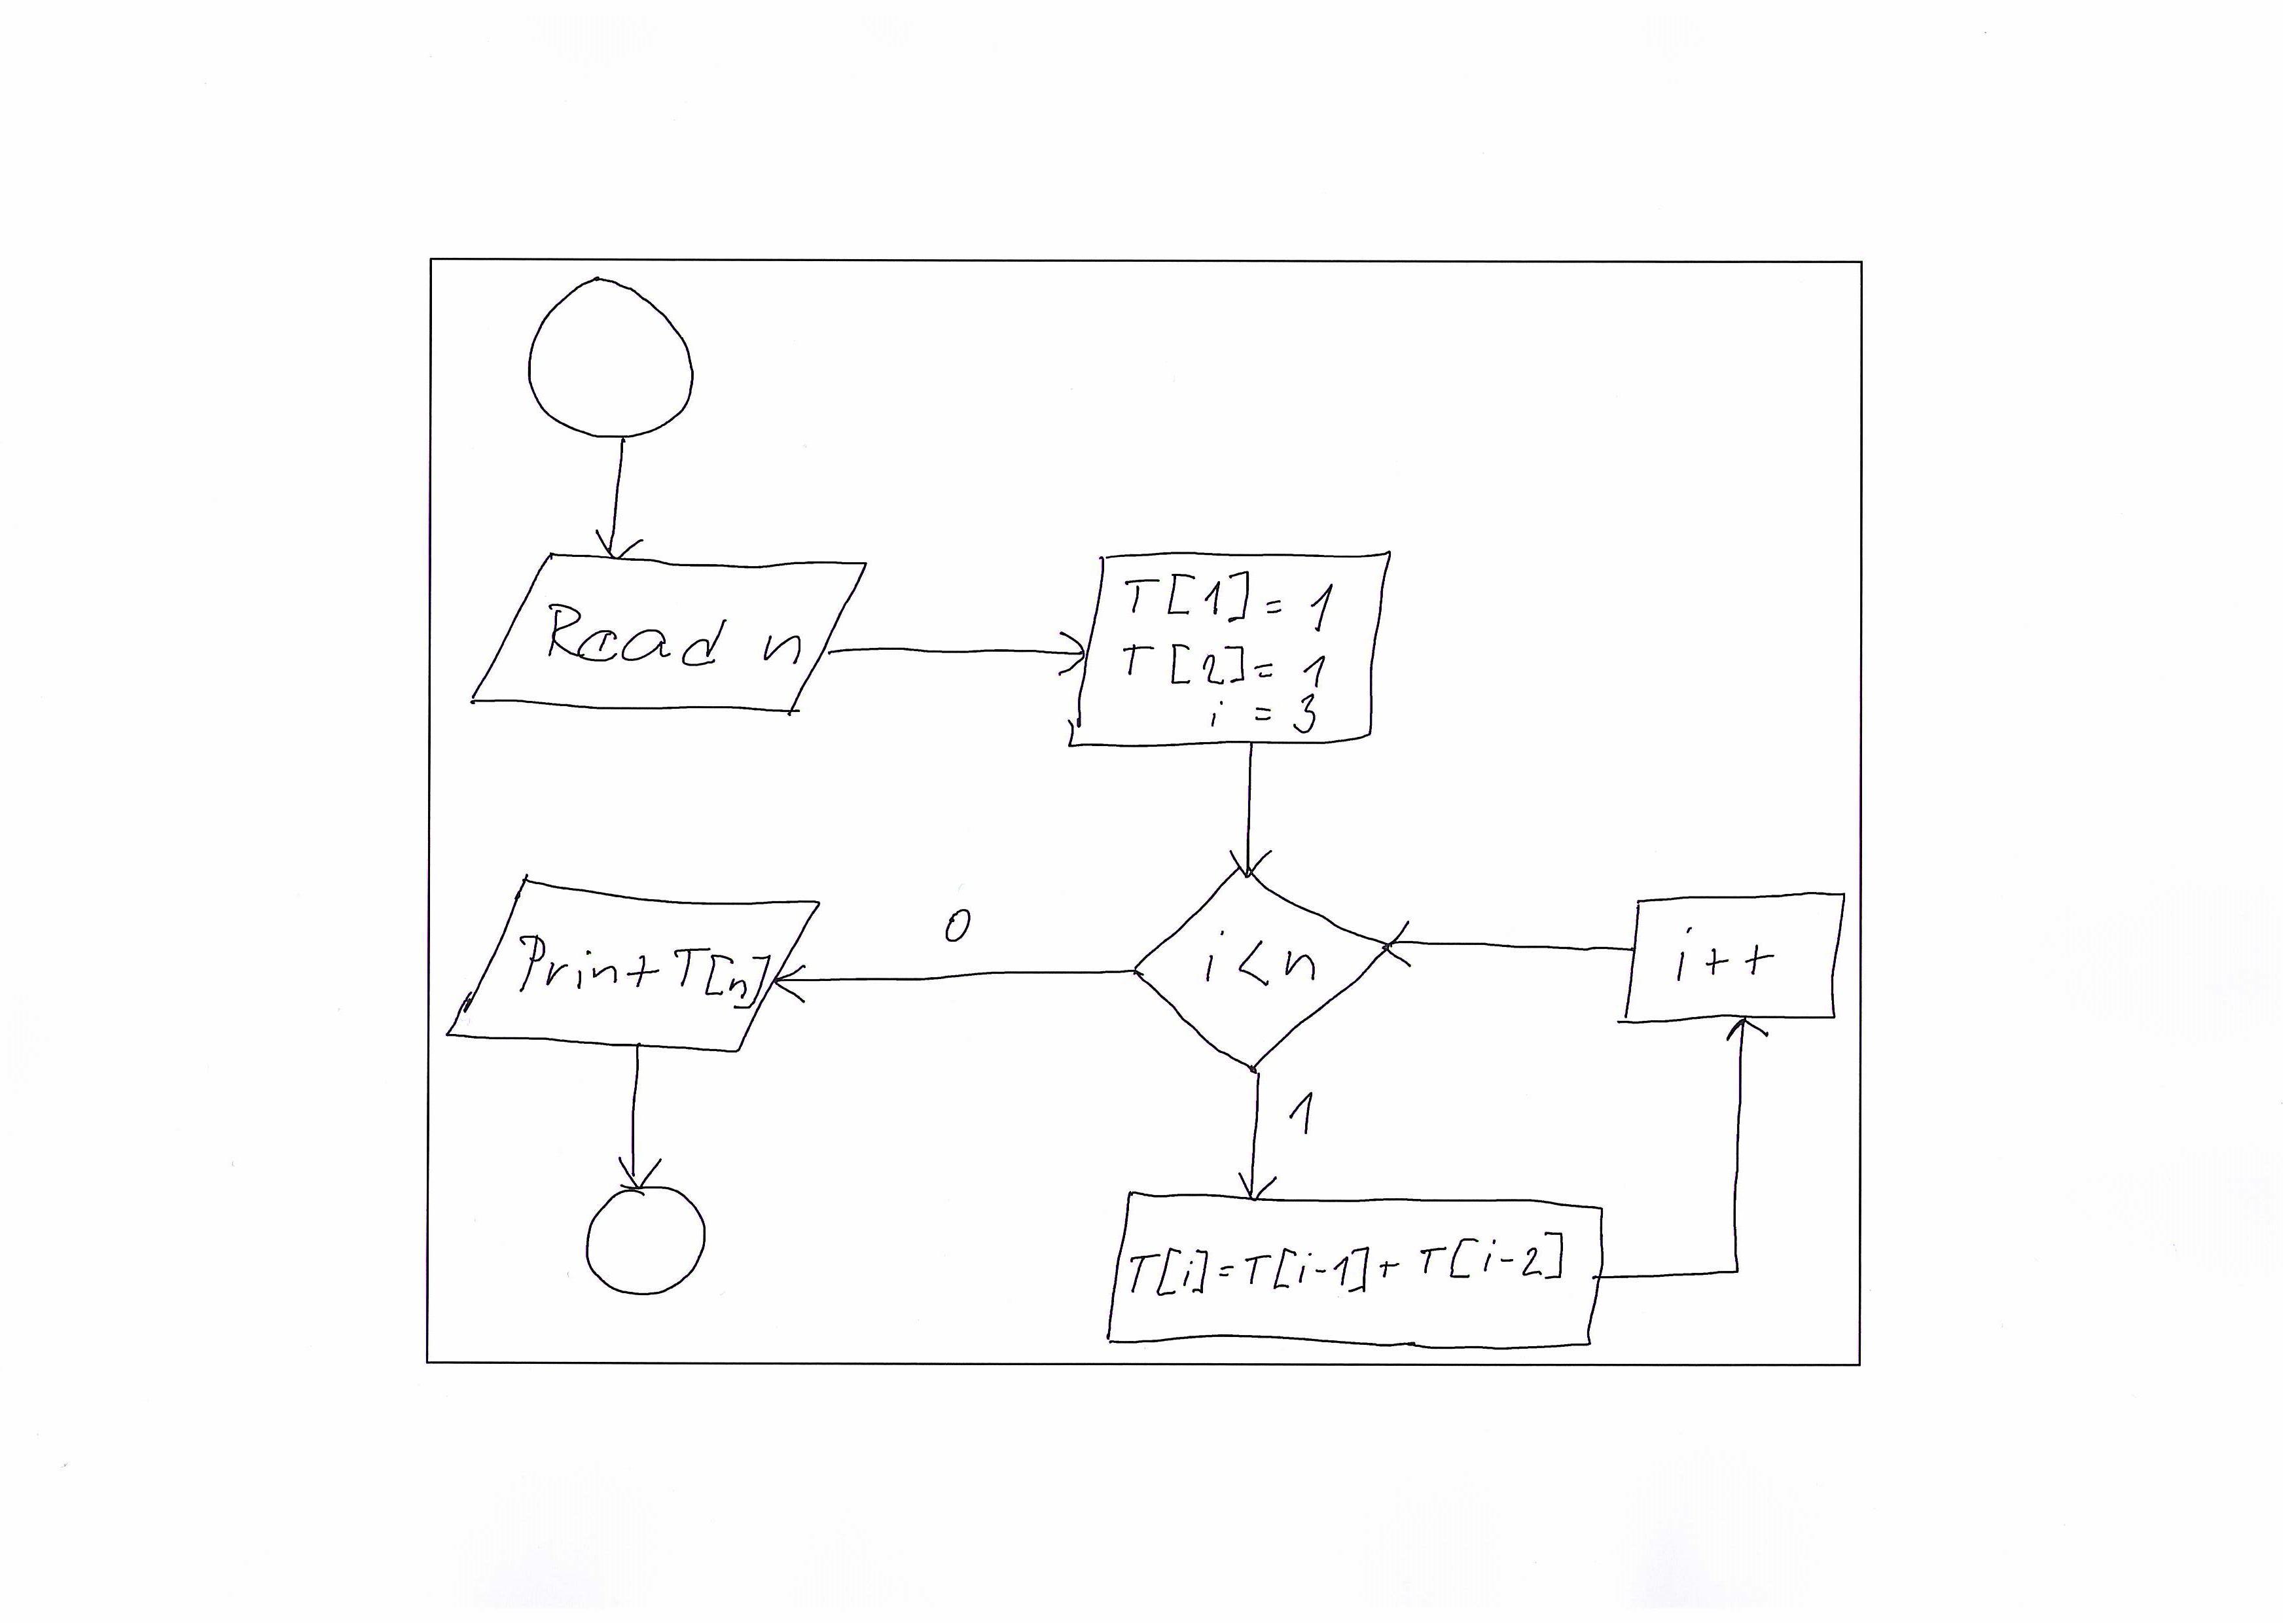 Read n
T[1] = 1
T[2] = 1
i = 3
i < n
0
Print T[n]
i++
1
T[i] = T[i-1] + T[i-2]